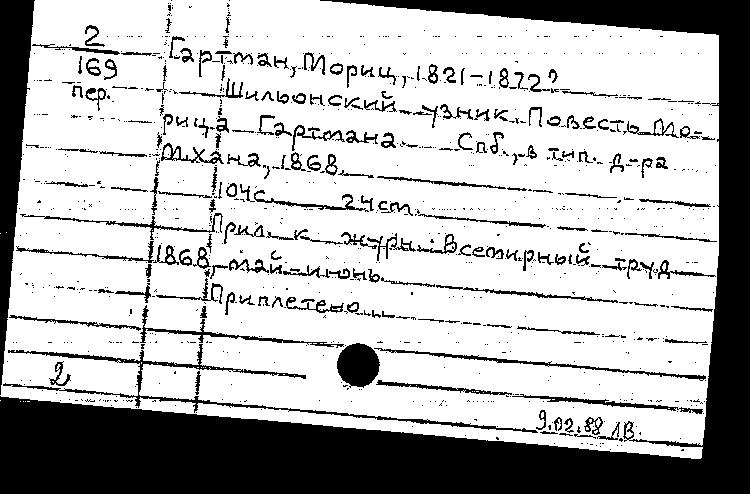 2
169
пер.
Гартман, Мориц, 1821-1872?
Шильонский узник. Повесть Мо-
рица Гартмана. Спб., в тип. д-ра
М.Хана, 1868.
104с. 24см.
Прил. к журн.: Всемирный труд
1868, май-июнь
Приплетено..
2
9.02.88 ЛВ.